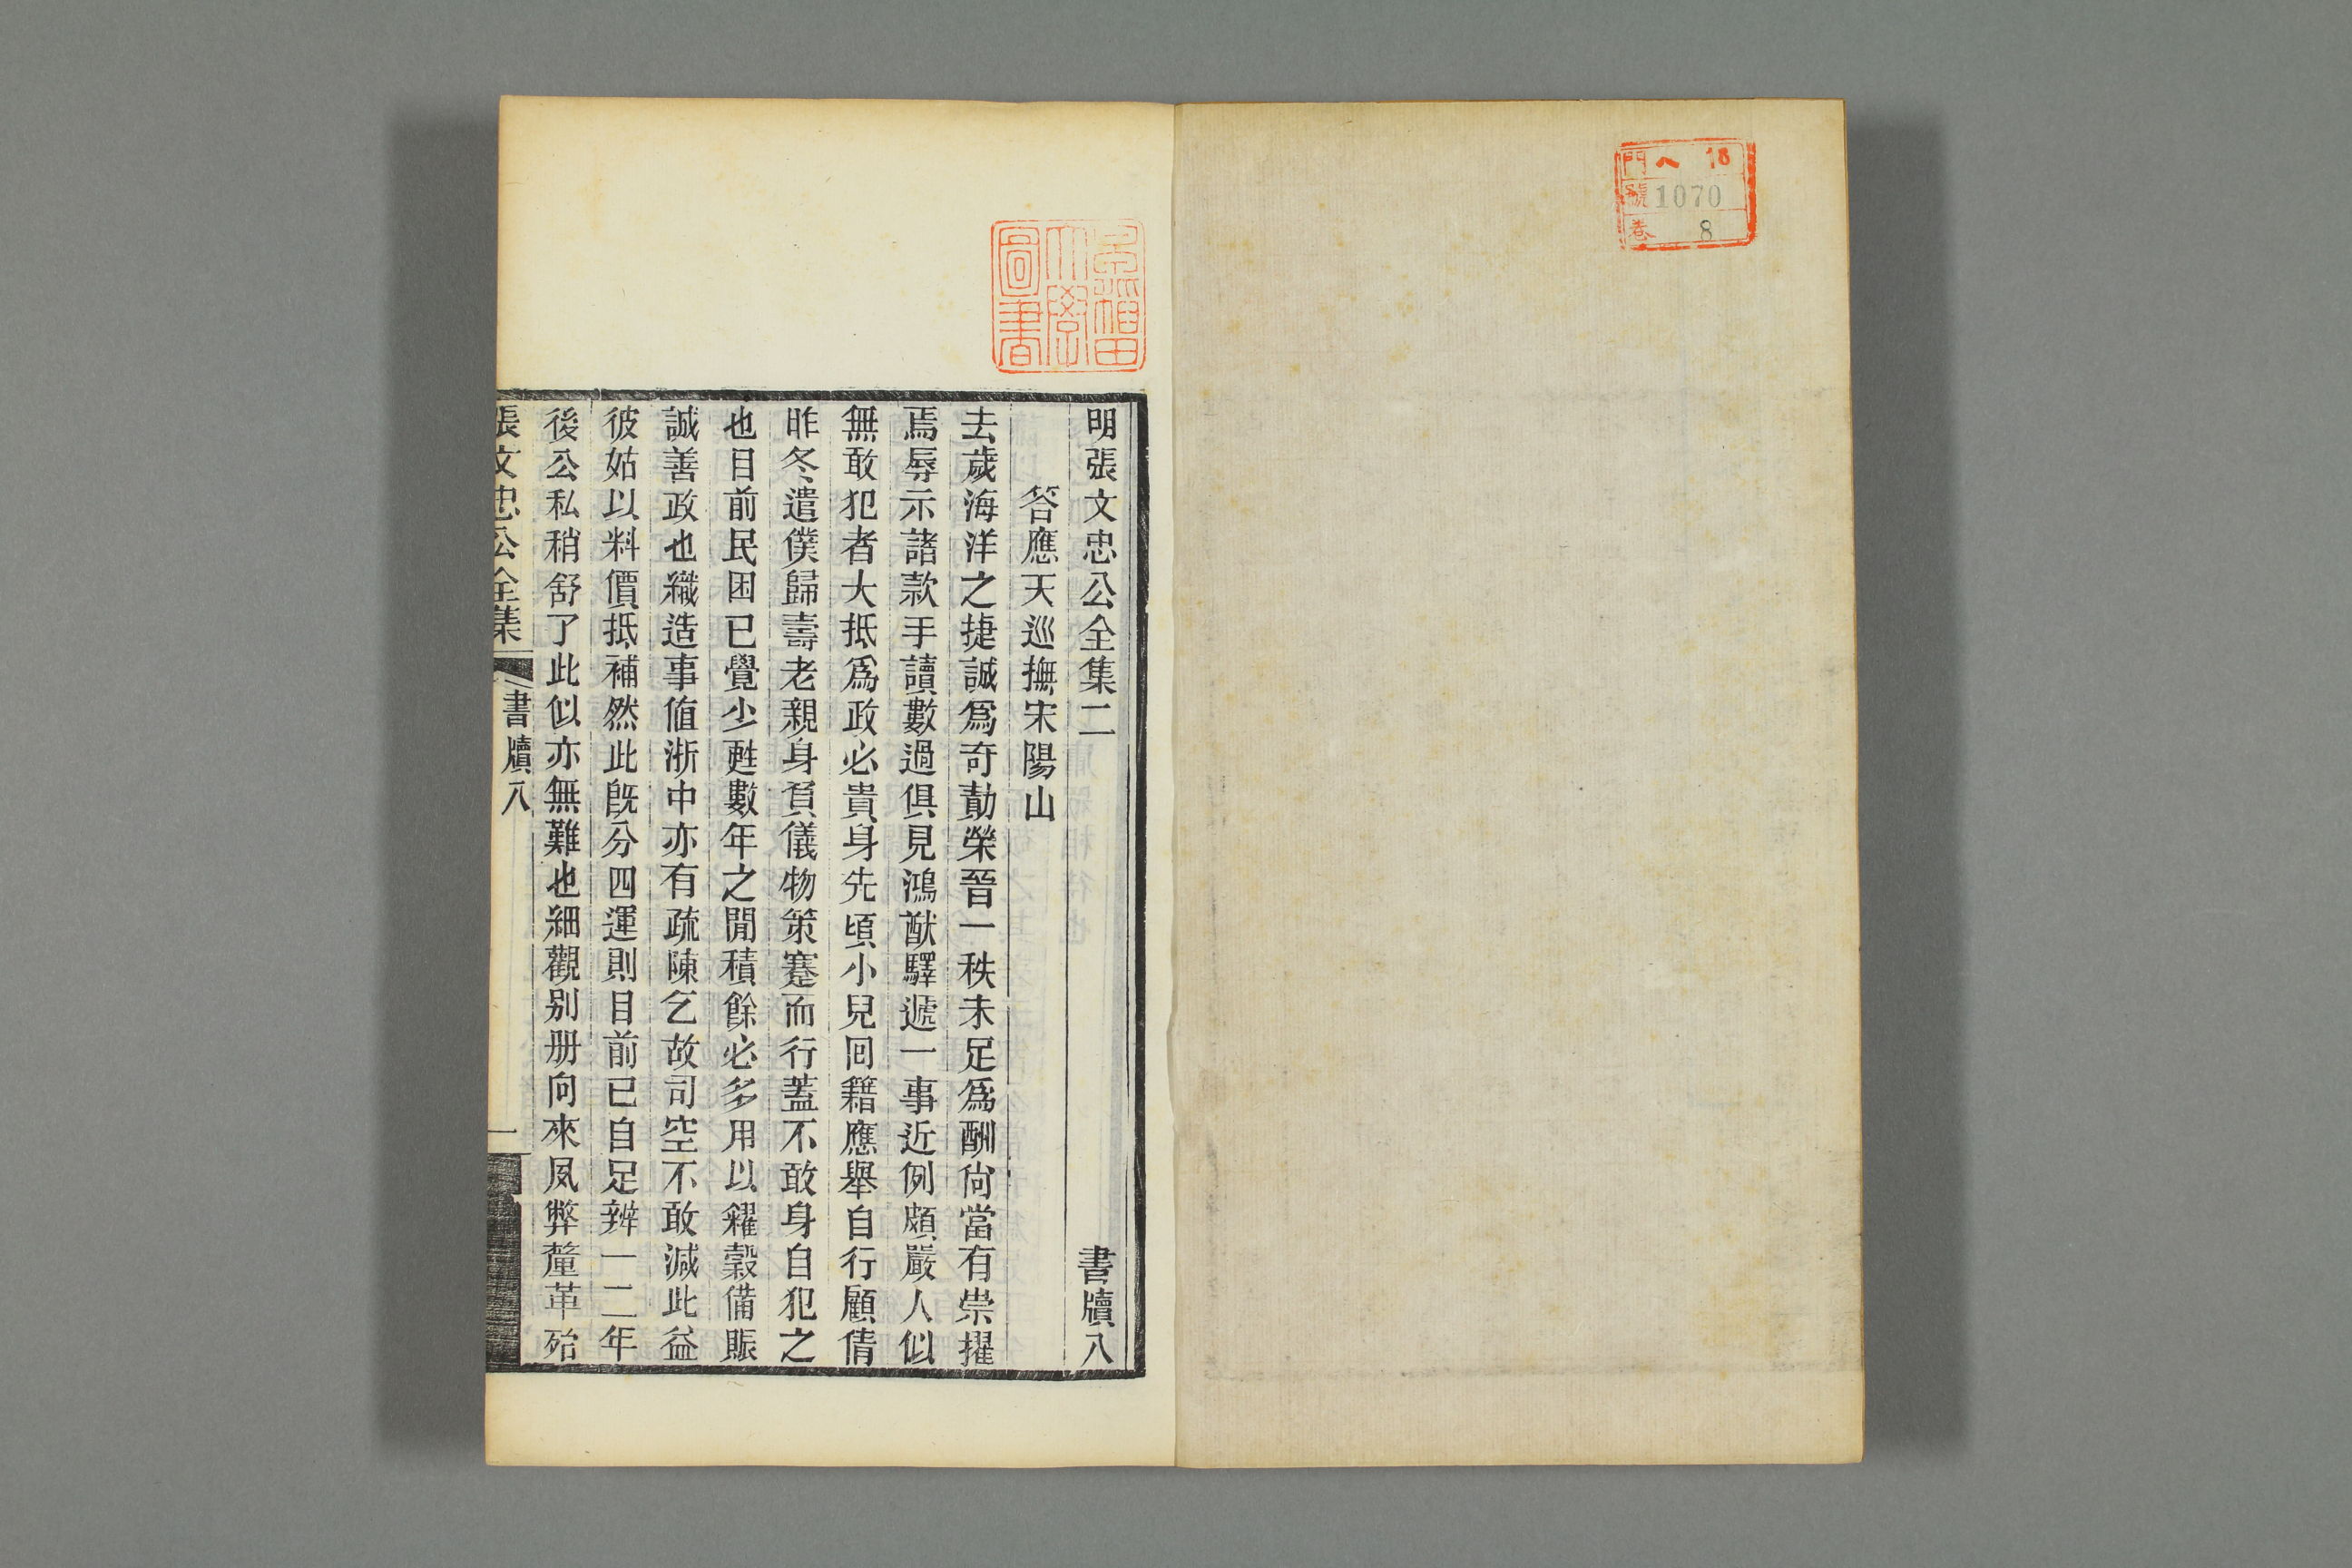 門 ヘ 18
號 1070
卷 8
早稲田
大學
圖書
明張文忠公全集二 書牘八
答應天巡撫宋陽山
去歲海洋之捷誠爲奇勣榮晉一秩未足爲酬尙當有崇擢
焉辱示諸款手讀數過俱見鴻猷驛遞一事近例頗嚴人似
無敢犯者大抵爲政必貴身先頃小兒囘籍應舉自行顧倩
昨冬遣僕歸壽老親身負儀物策蹇而行蓋不敢身自犯之
也目前民困已覺少甦數年之閒積餘必多用以糴穀備賑
誠善政也織造事値浙中亦有疏陳乞故司空不敢減此益
彼姑以料價抵補然此旣分四運則目前已自足辦一二年
後公私稍舒了此似亦無難也細觀别册向來夙弊釐革殆
張文忠公全集 書牘八 一